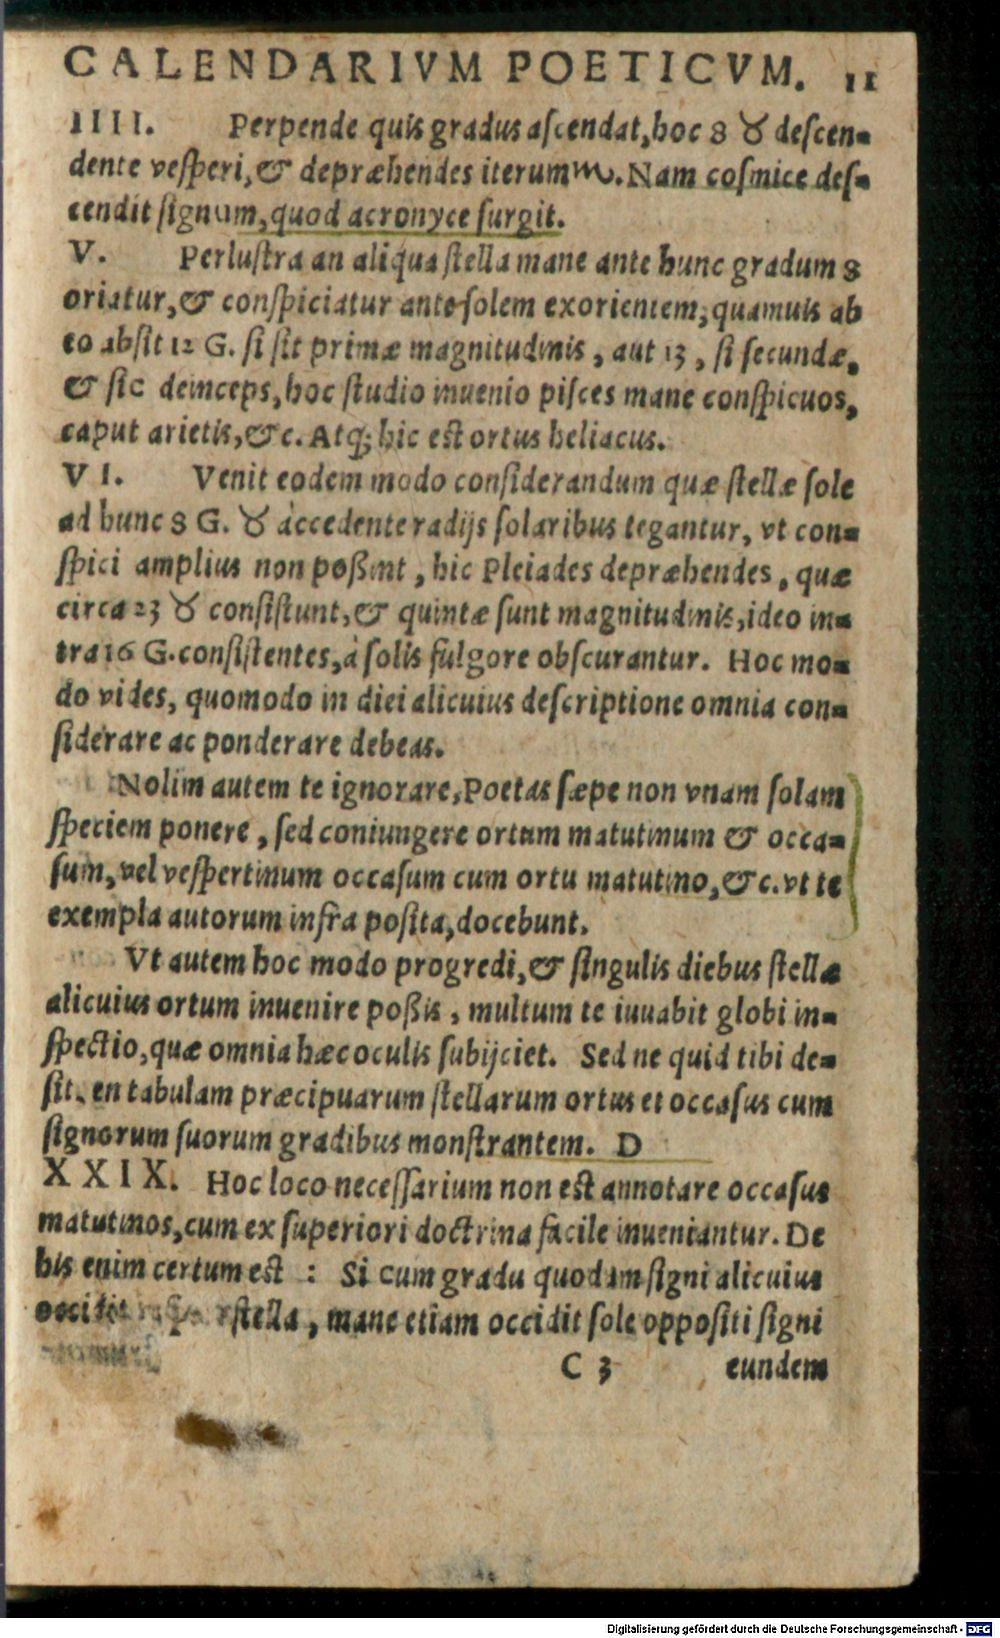 CALENDARIVM POETICVM. 11
IIII. Perpende quis gradus ascendat, hoc 8 ♉ descen-
dente vesperi, & depræhendes iterum ♏. Nam cosmice des-
cendit signum, quod acronyce surgit.
V. Perlustra an aliqua stella mane ante hunc gradum 8
oriatur, & conspiciatur ante solem exorientem, quamuis ab
eo absit 12 G. si sit primæ magnitudinis, aut 13, si secundæ,
& sic deinceps, hoc studio inuenio pisces mane conspicuos,
caput arietis, &c. Atq; hic est ortus heliacus.
VI. Venit eodem modo considerandum quæ stellæ sole
ad hunc 8 G. ♉ accedente radijs solaribus tegantur, vt con-
spici amplius non poßint, hic Pleiades depræhendes, quæ
circa 23 ♉ consistunt, & quintæ sunt magnitudinis, ideo in-
tra 16 G. consistentes, à solis fulgore obscurantur. Hoc mo-
do vides, quomodo in diei alicuius descriptione omnia con-
siderare ac ponderare debeas.
Nolim autem te ignorare, Poetas sæpe non vnam solam
speciem ponere, sed coniungere ortum matutinum & occa-
sum, vel vespertinum occasum cum ortu matutino, &c. vt te
exempla autorum infra posita, docebunt.
Vt autem hoc modo progredi, & singulis diebus stellæ
alicuius ortum inuenire poßis, multum te iuuabit globi in-
spectio, quæ omnia hæc oculis subijciet. Sed ne quid tibi de-
sit, en tabulam præcipuarum stellarum ortus et occasus cum
signorum suorum gradibus monstrantem. D
XXIX. Hoc loco necessarium non est annotare occasus
matutinos, cum ex superiori doctrina facile inueniantur. De
his enim certum est : Si cum gradu quodam signi alicuius
occidit stella, mane etiam occidit sole oppositi signi
C 3 eundem
Digitalisierung gefördert durch die Deutsche Forschungsgemeinschaft - DFG